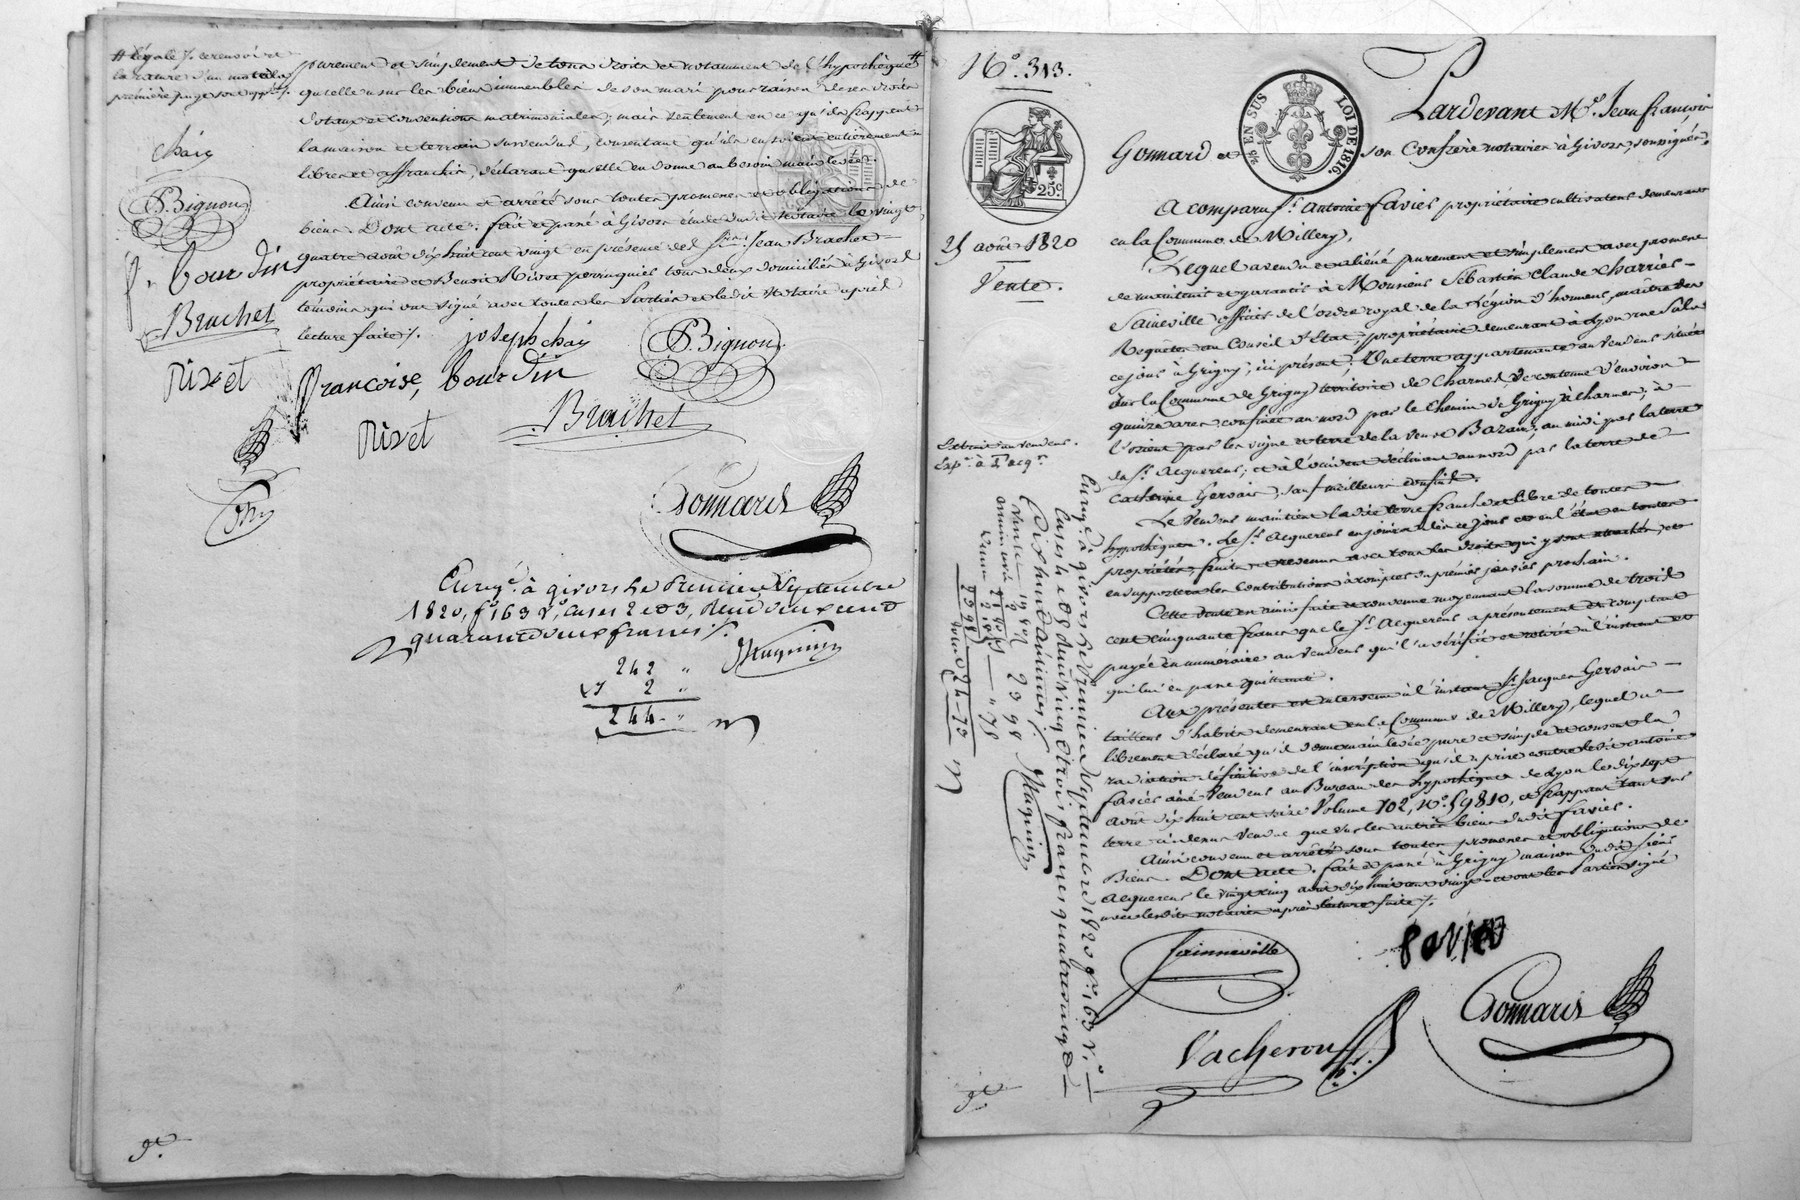 # légale /. ce renvoi et
la rature d'un mot à la
première page sont app.és /.
chaiz
P. Bignon
f. bourdin
Brachet
Rivet
purement et simplement de tous droits et notamment de l'hypothèque #
qu'elle a sur les biens immeubles de son mari pour raison de ses droits
dotaux et conventions matrimoniales, mais seulement en ce qu'ils frappent
la maison et terrain sus vendus, consentant qu'ils en soient entièrement
libres et affranchis, déclarant qu'elle en donne au besoin main levée.
Ainsi convenu et arrêté sous toutes promesses et obligations de
biens. Dont acte. fait et passé à Givors étude dudit Notaire le vingt
quatre août dix huit cent vingt en présence des Srs. Jean Brachet
propriétaire et Benoit Rivet perruquier tous deux domiciliés à Givors
témoins qui ont signé avec toutes les Parties et ledit Notaire après
lecture faite /.
joseph chaiz
P. Bignon
françoise, bourdin
Brachet
Rivet
Gonnard
Enregé. à givors le Premier Septembre
1820, fo. 163 Vo. cases 2 et 3, Reçu deux cent
quarante deux francs /.
242 "
2 "
244 - "
Magnin
N.o 313.
25 août 1820
Vente.
25c
EN SUS
LOI DE 1816.
Pardevant M.e Jean françois
Gonnard et son Confrere notaires à Givors, soussignés,
A comparu Sr. Antoine favier propriétaire cultivateur demeurant
en la Commune de Millery,
Lequel a vendu et aliéné purement et simplement avec promesse
de maintenir et garantir à Monsieur Sébastien Claude charrier-
Sainneville officier de l'ordre royal de la Légion d'honneur, maître des
Requêtes au Conseil d'Etat, propriétaire demeurant à Lyon rue Sala
ce jour à Grigny, ici présent, Une terre appartenante au vendeur située
sur la Commune de Grigny territoire de Charmes, de contenue d'environ
quinze ares confinée au nord par le Chemin de Grigny à charmes, à
l'orient par les vigne et terre de la veuve Bazain, au midi par la terre
du Sr. Acquereur, et à l'occident déclinant au nord par la terre de
Catherine Gervais, sauf meilleurs confins.
Le Vendeur maintient ladite terre franche et libre de toutes
hypothèques. Le Sr. Acquereur en jouira dès ce jour et en l'état en toutes
propriétés, fruits et revenus avec tous les droits qui y sont attachés, et
en supportera les contributions à compter du premier janvier prochain.
Cette vente est ainsi faite et convenue moyennant la somme de trois
cent cinquante francs que le Sr. Acquereur a présentement et comptant
payée en numéraire au vendeur qui l'a vérifiée et retirée à l'instant et
qui lui en passe quittance.
Aux présentes est intervenu à l'instant Sr. Jacques Gervais
tailleur d'habits demeurant en la Commune de Millery, lequel a
librement déclaré qu'il donne main levée pure et simple et consent la
radiation définitive de l'inscription qu'il a prise contre ledit antoine
favier ainé Vendeur au Bureau des hypothèques de Lyon le dix sept
Août dix huit cent seize Volume 102, N.o 59810, et frappant tant sur
terre ci dessus vendue que sur les autres biens dudit favier.
Ainsi convenu et arrêté sous toutes promesses et obligations de
Biens. Dont acte. fait et passé à Grigny maison dudit sieur
Acquereur le vingt cinq août dix huit cent vingt et ont les Parties signé
avec lesdits notaires après lecture faite /.
Extrait au vendeur.
Exp.n à l'acq.r
Enregé. à givors le Premier Septembre 1820 fo. 163 Vo.
Cases 4 et 5 Reçu vingt trois francs quatre vingt et
dix huit centimes /. Magnin
Sainneville
favier
Gonnard
Vacheron